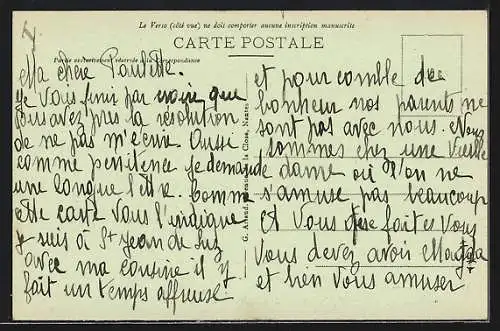 Le Verso (côté vue) ne doit comporter aucune inscription manuscrite
CARTE POSTALE
Partie exclusivement réservée à la Correspondance
Ma chère Paulette.
Je vous finis par croire que
vous avez pris la résolution
de ne pas m'ecrir. Aussi
comme penitence je demande
une longue lettre. Comme
cette carte vous l'indique
je suis à St Jean de Luz
avec ma cousine il y
fait un temps affreuse
et pour comble de
bonheur nos parents ne
sont pas avec nous. Nous
sommes chez une vieille
dame où l'on ne
s'amuse pas beaucoup
Et vous que faites vous
vous devez avoir Magda
et bien vous amuser
G. Artaud, Nantes